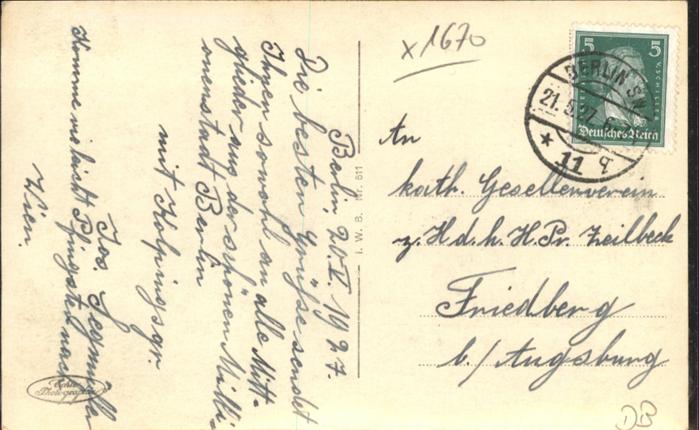 Berlin 20.V.1927.
Die besten Grüsse sendet
Ihnen sowohl an alle Mit-
glieder aus der schönen Milli-
onenstadt Berlin
mit Kolpingsgr.
Jos. Segmüller
Komme vielleicht Pfingsten nach
Wien.
x 1670
5 5
Deutsches Reich
BERLIN SW
21.5.27.
* 11 q
An
kath. Gesellenverein
z. H. d. h. H. Pr. Zeilbeck
Friedberg
b./Augsburg
I. W. B. Nr. 511
Echte
Photographie
DB